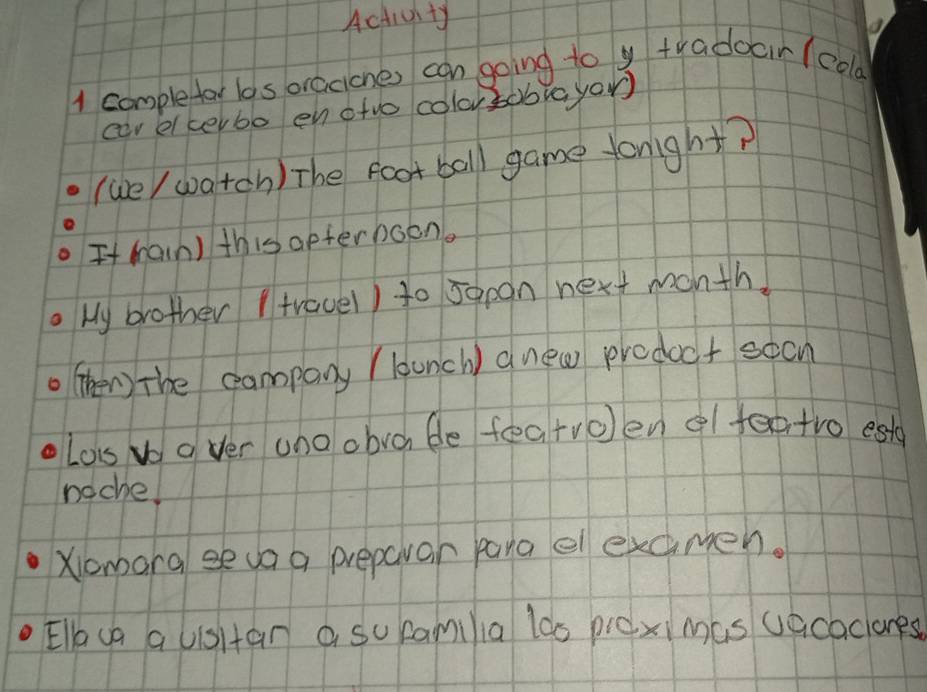 Activity
1 completar las oraciones con going to y traducir (colo
car el verbo en otro color sobrayar)
• (we / watch) The Foot ball game tonight?
•
• It (rain) this afternoon.
• My brother (travel) to Japan next month.
• (Then) The company (launch) a new product soon
• Lois va a ver una obra (de teatro) en el teatro esta
noche.
• Xiomara se va a preparar para el examen.
• Ella va a visitar a su familia las proximas vacaciones.